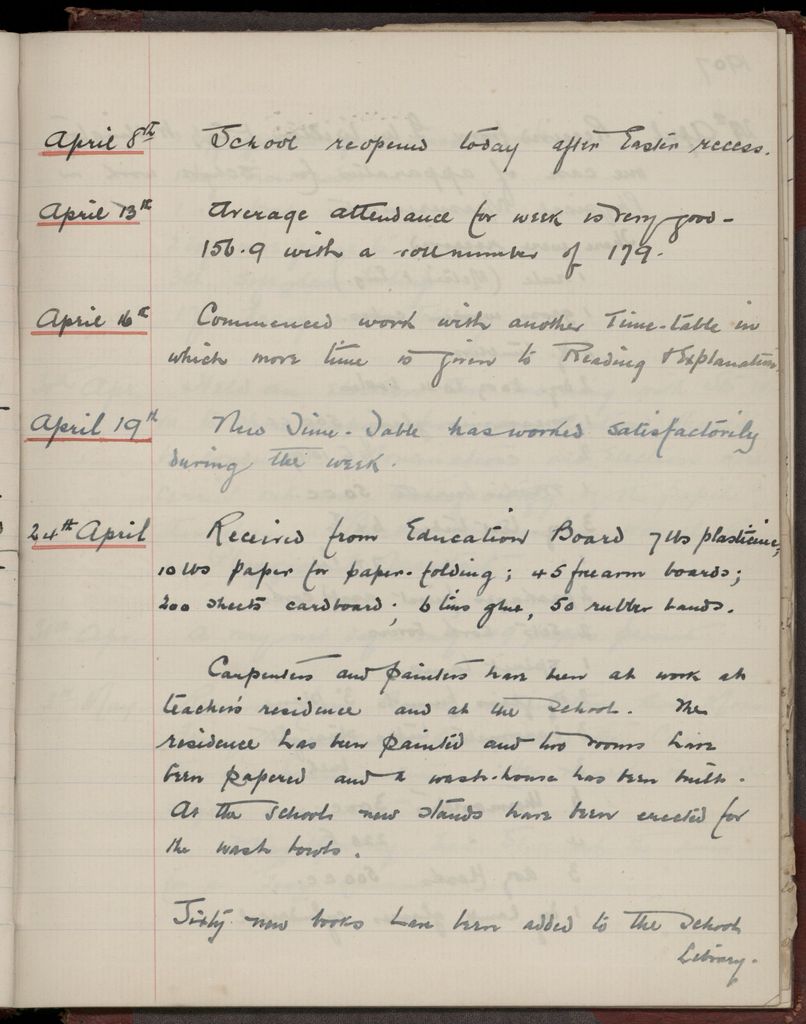 April 8th School reopened today after Easter recess.
April 13th Average attendance for week is very good -
156.9 with a roll number of 179.
April 16th Commenced work with another Time-table in
which more time is given to Reading & Explanation
April 19th New Time-Table has worked satisfactorily
during the week.
24th April Received from Education Board 7 lbs plasticine,
10 lbs paper for paper-folding; 45 freearm boards;
200 sheets cardboard; 6 tins glue, 50 rubber bands.
Carpenters and painters have been at work at
teacher's residence and at the School. The
residence has been painted and two rooms have
been papered and a wash-house has been built.
At the School new stands have been erected for
the wash bowls.
Sixty new books have been added to the School
Library.